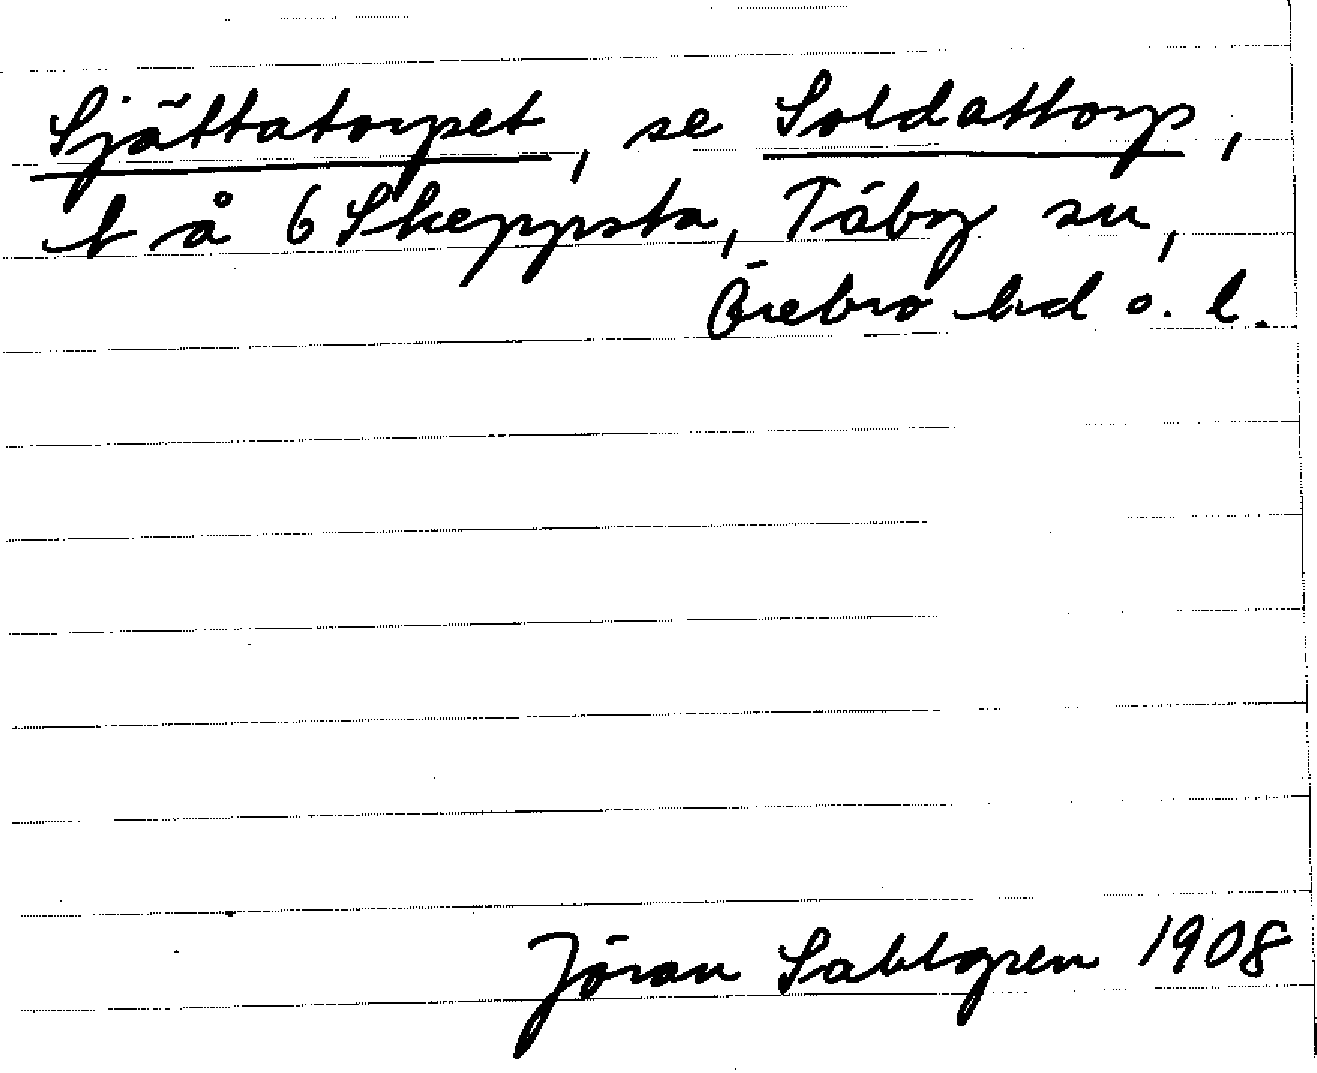 Sjättatorpet, se Soldattorp,
t å 6 Skeppsta, Täby sn,
Örebro hd o. l.
Jöran Sahlgren 1908